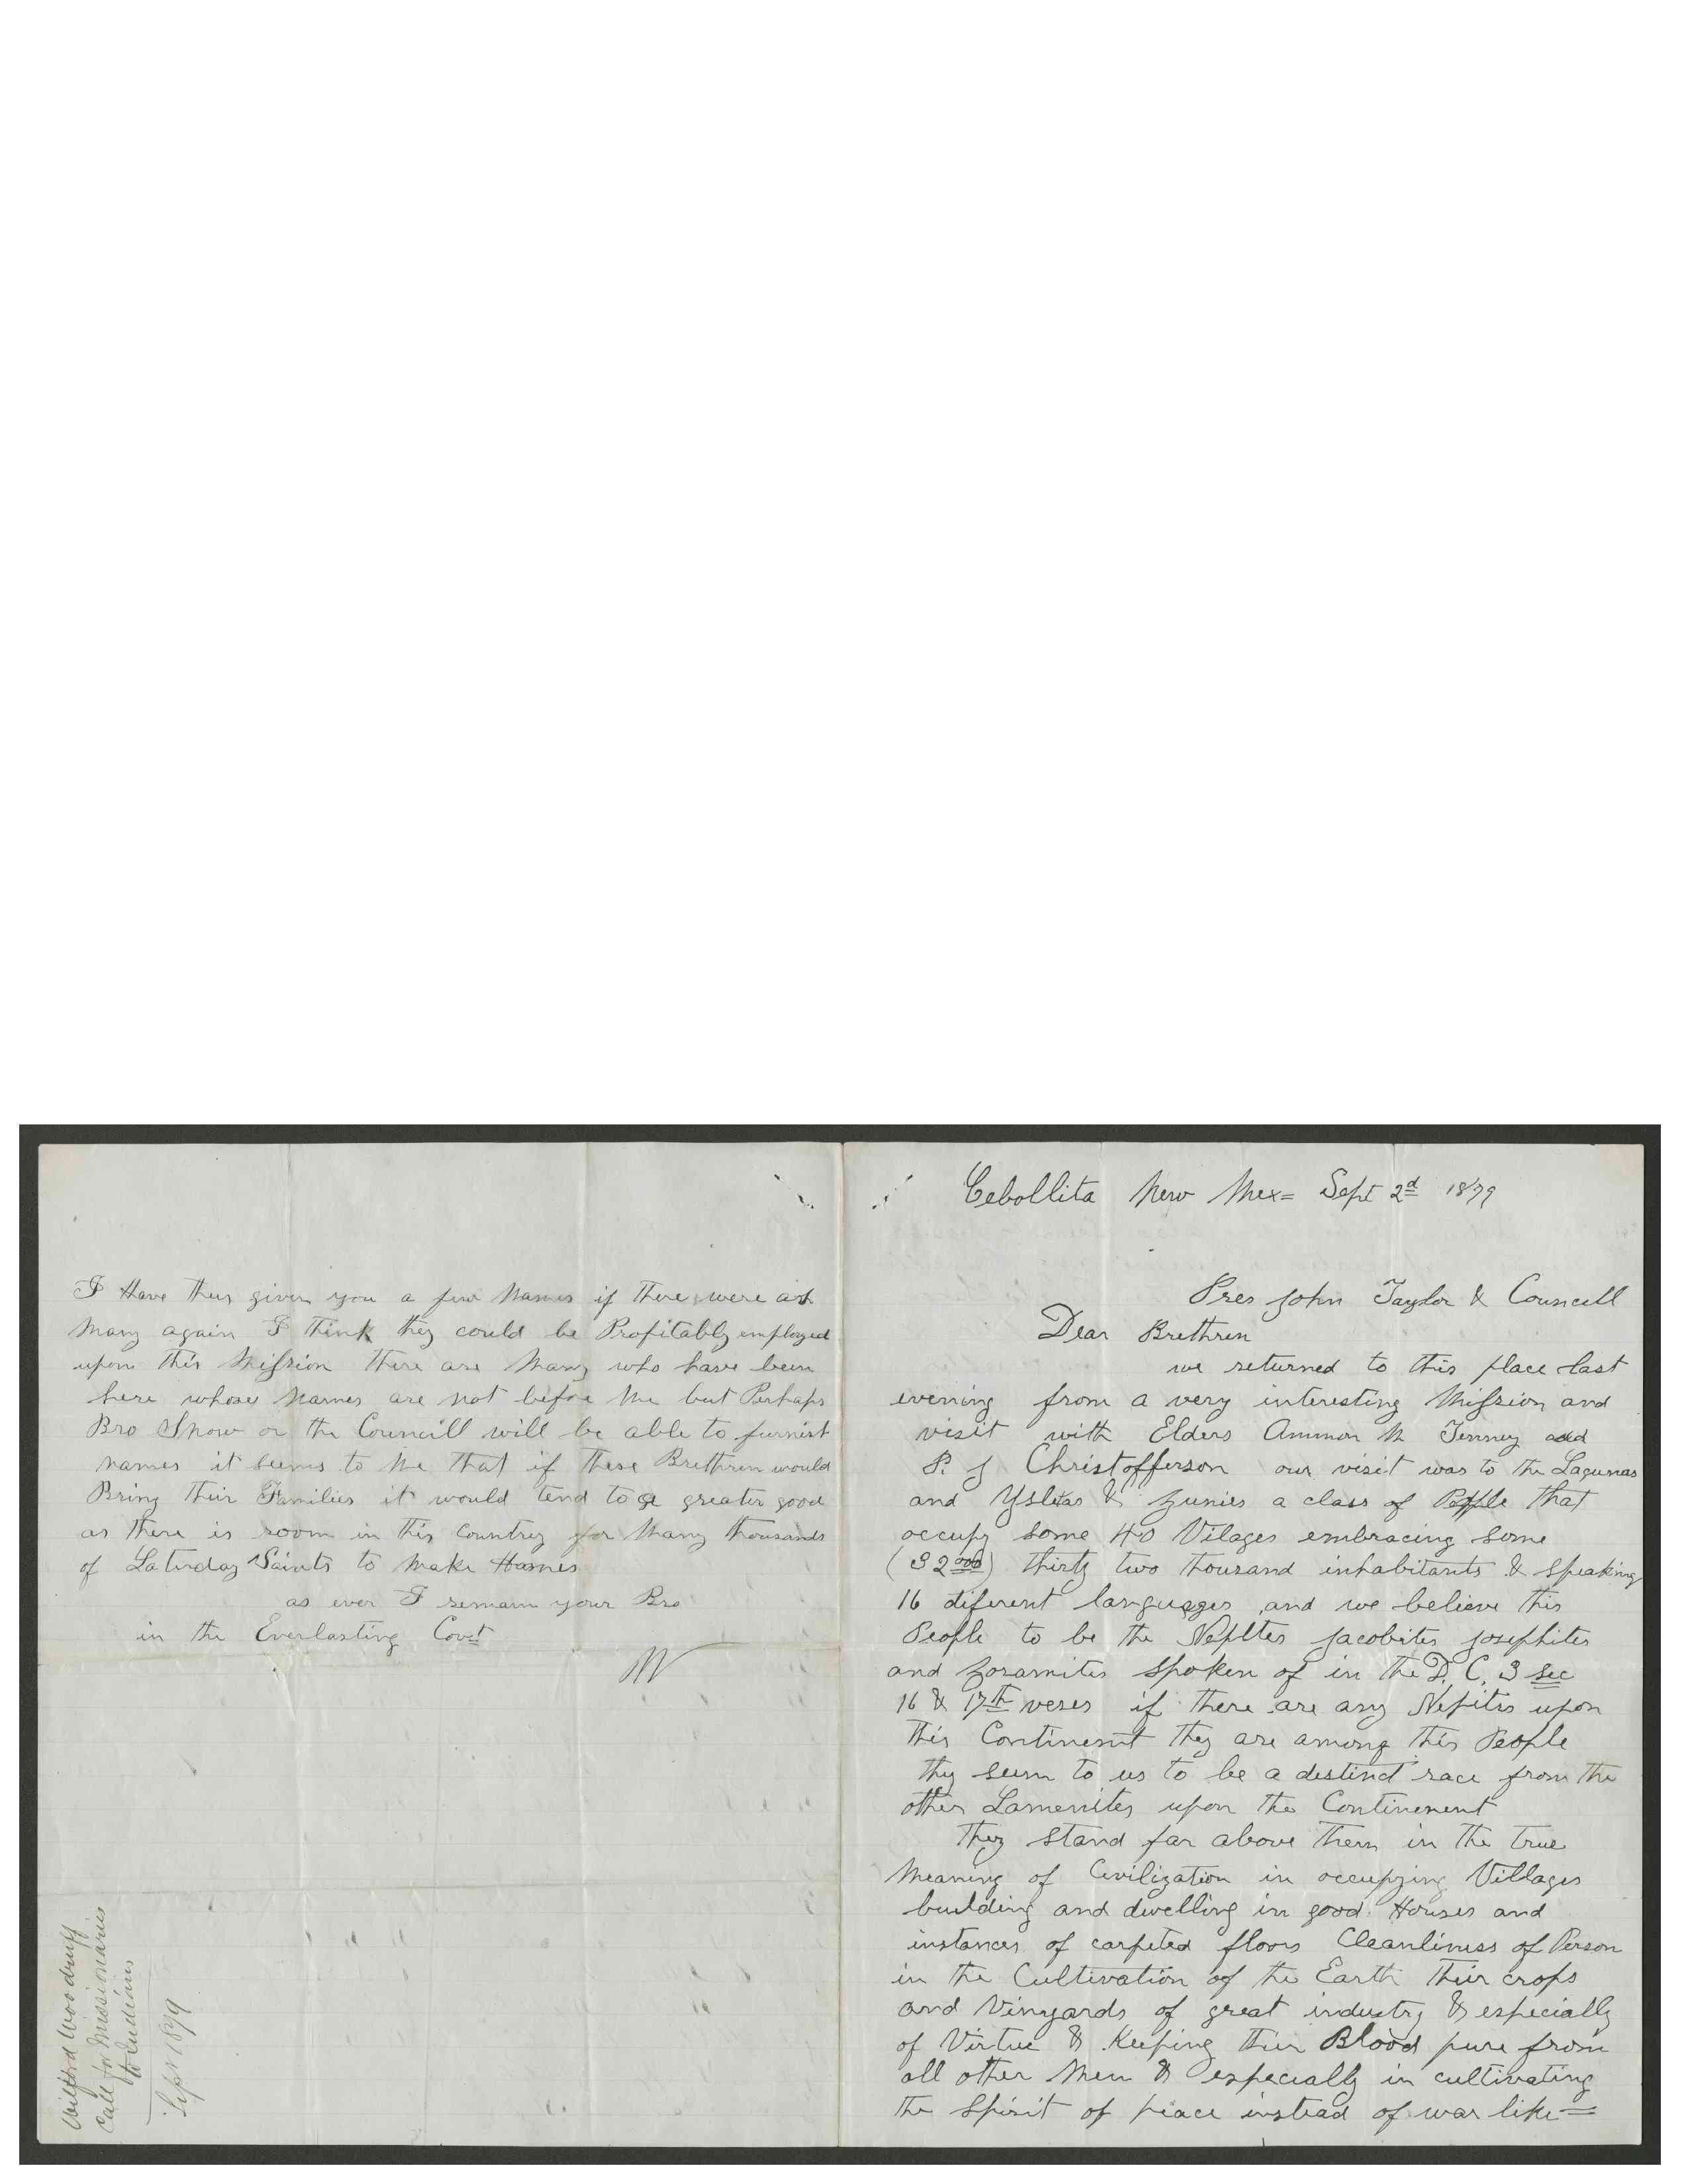 I Have thus given you a few Names if there were as
Many again I think they could be Profitably employed
upon this Mission there are Many who have been
here whose Names are not before Me but Perhaps
Bro Snow or the Councill will be able to furnish
names it seems to Me that if these Brethren would
Bring their Families it would tend to a greater good
as there is room in this Country for Many thousands
of Laturday Saints to Make Homes
as ever I remain your Bro
in the Everlasting Covt
W
Wilford Woodruff
Call for Missionaries
to Indians
Sept 1879
Cebollita New Mex= Sept 2d 1879
Pres John Taylor & Councell
Dear Brethren
we returned to this place last
evening from a very interesting Mission and
visit with Elders Ammon M Tenney and
P. J Christofferson our visit was to the Lagunas
and Ysletas & Zunies a class of People that
occupy some 40 Vilages embracing some
(32000) thirty two thousand inhabitants & speaking
16 diferent languages and we believe this
People to be the Nephites Jacobites Josephites
and Zoramites spoken of in the D. C. 3 Sec
16 & 17th veses if there are any Nefites upon
this Continent they are among this People
they seem to us to be a destinct race from the
other Lamenites upon the Continenent
They stand far above them in the true
Meaning of Civilization in occupying Villages
building and dwelling in good Houses and
instances of carpeted floors Cleanliness of Person
in the Cultivation of the Earth their crops
and Vinyards of great industry & especially
of Virtue & Keeping their Blood pure from
all other Men & especially in cultivating
the Spirit of peace instead of war like=